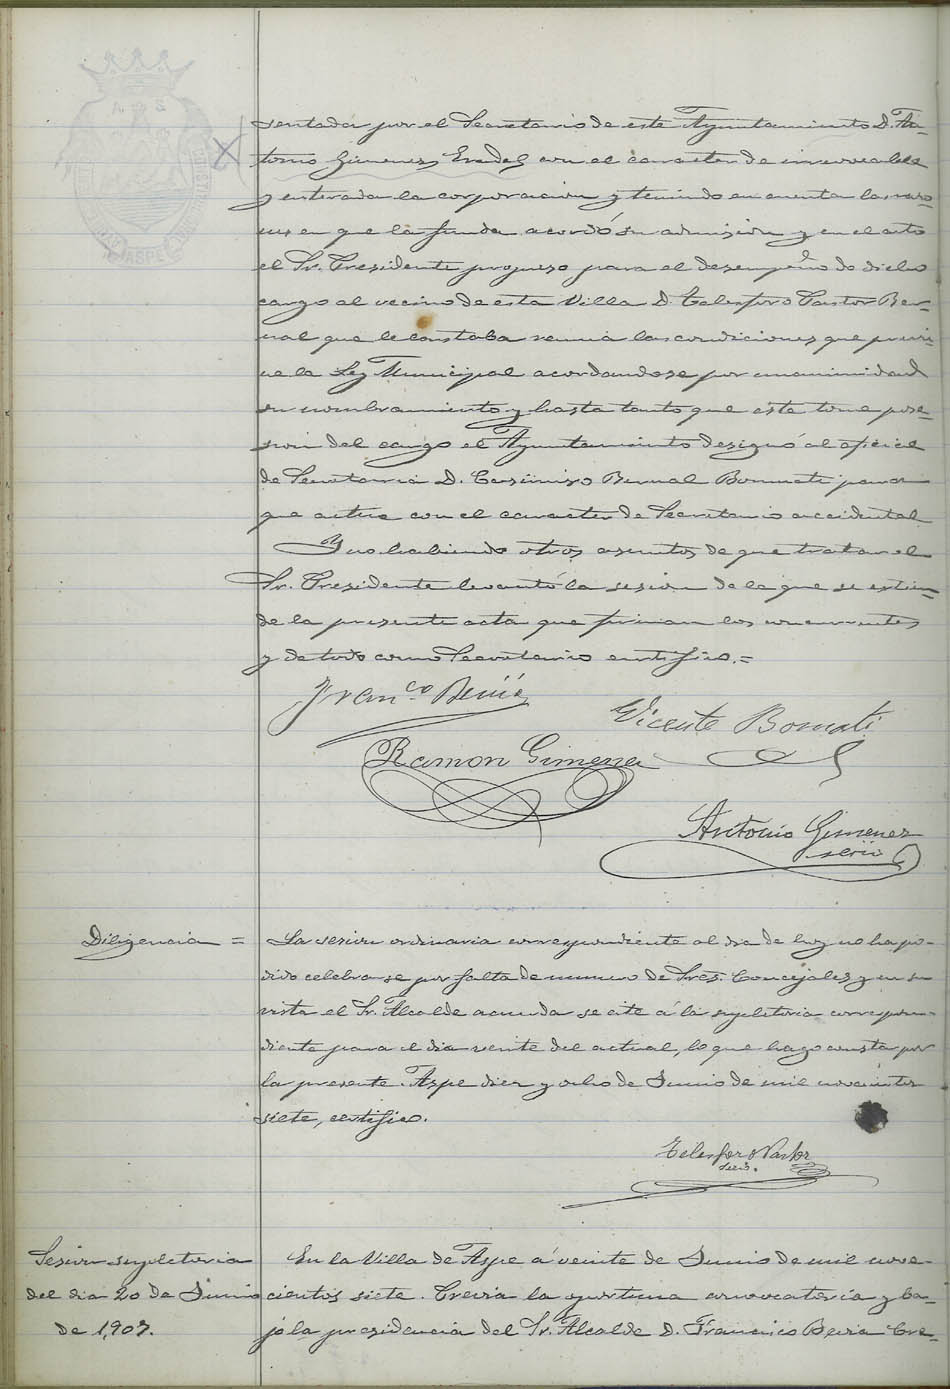 sentada por el Secretario de este Ayuntamiento D. An-
tonio Gimenez Eradel con el caracter de irrevocable
y enterada la corporacion y teniendo en cuenta las razo-
nes en que la funda acordó su admision y en el acto
el Sr. Presidente propuso para el desempeño de dicho
cargo al vecino de esta Villa D. Telesforo Pastor Ber-
nal que le constaba reunia las condiciones que previ-
ne la Ley Municipal acordandose por unanimidad
su nombramiento y hasta tanto que este tome pose-
sion del cargo el Ayuntamiento designó al oficial
de Secretaria D. Casimiro Bernal Bonmati para
que actue con el caracter de Secretario accidental
Y no habiendo otros asuntos de que tratar el
Sr. Presidente levantó la sesion de la que se estien-
de la presente acta que firman los concurrentes
y de todo como Secretario certifico.=
Franco
Vicente Bonmati
Ramon Gimenez
Antonio Gimenez
serio
Diligencia =
La sesion ordinaria correspondiente al dia de hoy no ha po-
dido celebrarse por falta de numero de Sres. Concejales y en su
vista el Sr. Alcalde acuerda se cite á la supletoria correspon-
diente para el dia veinte del actual, lo que hago constar por
la presente. Aspe diez y ocho de Junio de mil novecientos
siete, certifico.
Telesforo Pastor
Secro.
Sesion supletoria
del dia 20 de Junio
de 1,907.
En la Villa de Aspe á veinte de Junio de mil nove-
cientos siete. Previa la oportuna convocatoria y ba-
jo la presidencia del Sr. Alcalde D. Francisco Cre-
ASPE